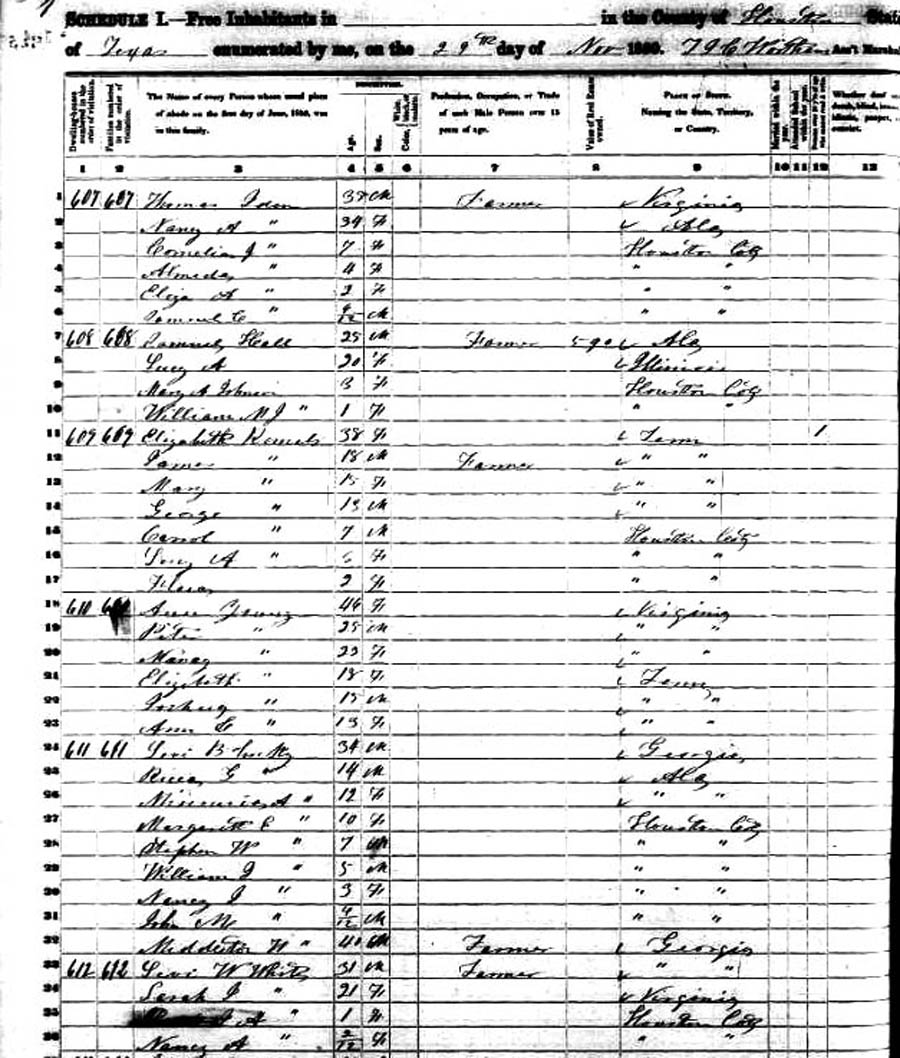 SCHEDULE I.—Free Inhabitants in in the County of Houston State
of Texas enumerated by me, on the 29th day of Nov 1850. Ass't Marshal
DESCRIPTION.
Dwelling-houses numbered in the order of visitation. Families numbered in the order of visitation. The Name of every Person whose usual place of abode on the first day of June, 1850, was in this family. Age. Sex. Color, White, black, or mulatto. Profession, Occupation, or Trade of each Male Person over 15 years of age. Value of Real Estate owned. PLACE OF BIRTH. Naming the State, Territory, or Country. Married within the year. Attended School within the year. Whether deaf and dumb, blind, insane, idiotic, pauper, or convict.
1 2 3 4 5 6 7 8 9 10 11 12 13
1 607 607 Thomas 38 M Farmer Virginia
2 Nancy A " 34 F Ala
3 Cornelia J " 7 F Houston Coty
4 Almeda " 4 F " "
5 Eliza A " 2 F " "
6 Samuel C " M " "
7 608 608 Samuel Hall 25 M Farmer 590 Ala
8 Lucy A 20 F Illinois
9 Mary A Johnson 3 F Houston Coty
10 William M J " 1 F " "
11 609 609 Elizabeth 38 F Tenn 1
12 James " 18 M Farmer " "
13 Mary " 15 F " "
14 George " 13 M " "
15 Carrol " 7 M Houston Coty
16 A " F " "
17 2 F " "
18 610 Anna Young 46 F Virginia
19 Peter " 25 M " "
20 " 23 F " "
21 Elizabeth " 18 F Tenn
22 " 15 M " "
23 Ann E " 13 F " "
24 611 611 Levi B 34 M Georgia
25 G " 14 M Ala
26 A " 12 F " "
27 Margarett E " 10 F Houston Coty
28 Stephen W " 7 M " "
29 William J " 5 M " "
30 Nancy J " 3 F " "
31 John M " M " "
32 Middleton W " 40 M Farmer Georgia
33 612 612 Levi W White 31 M Farmer " "
34 Sarah J " 21 F Virginia
35 A " 1 F Houston Coty
36 Nancy A " F " "